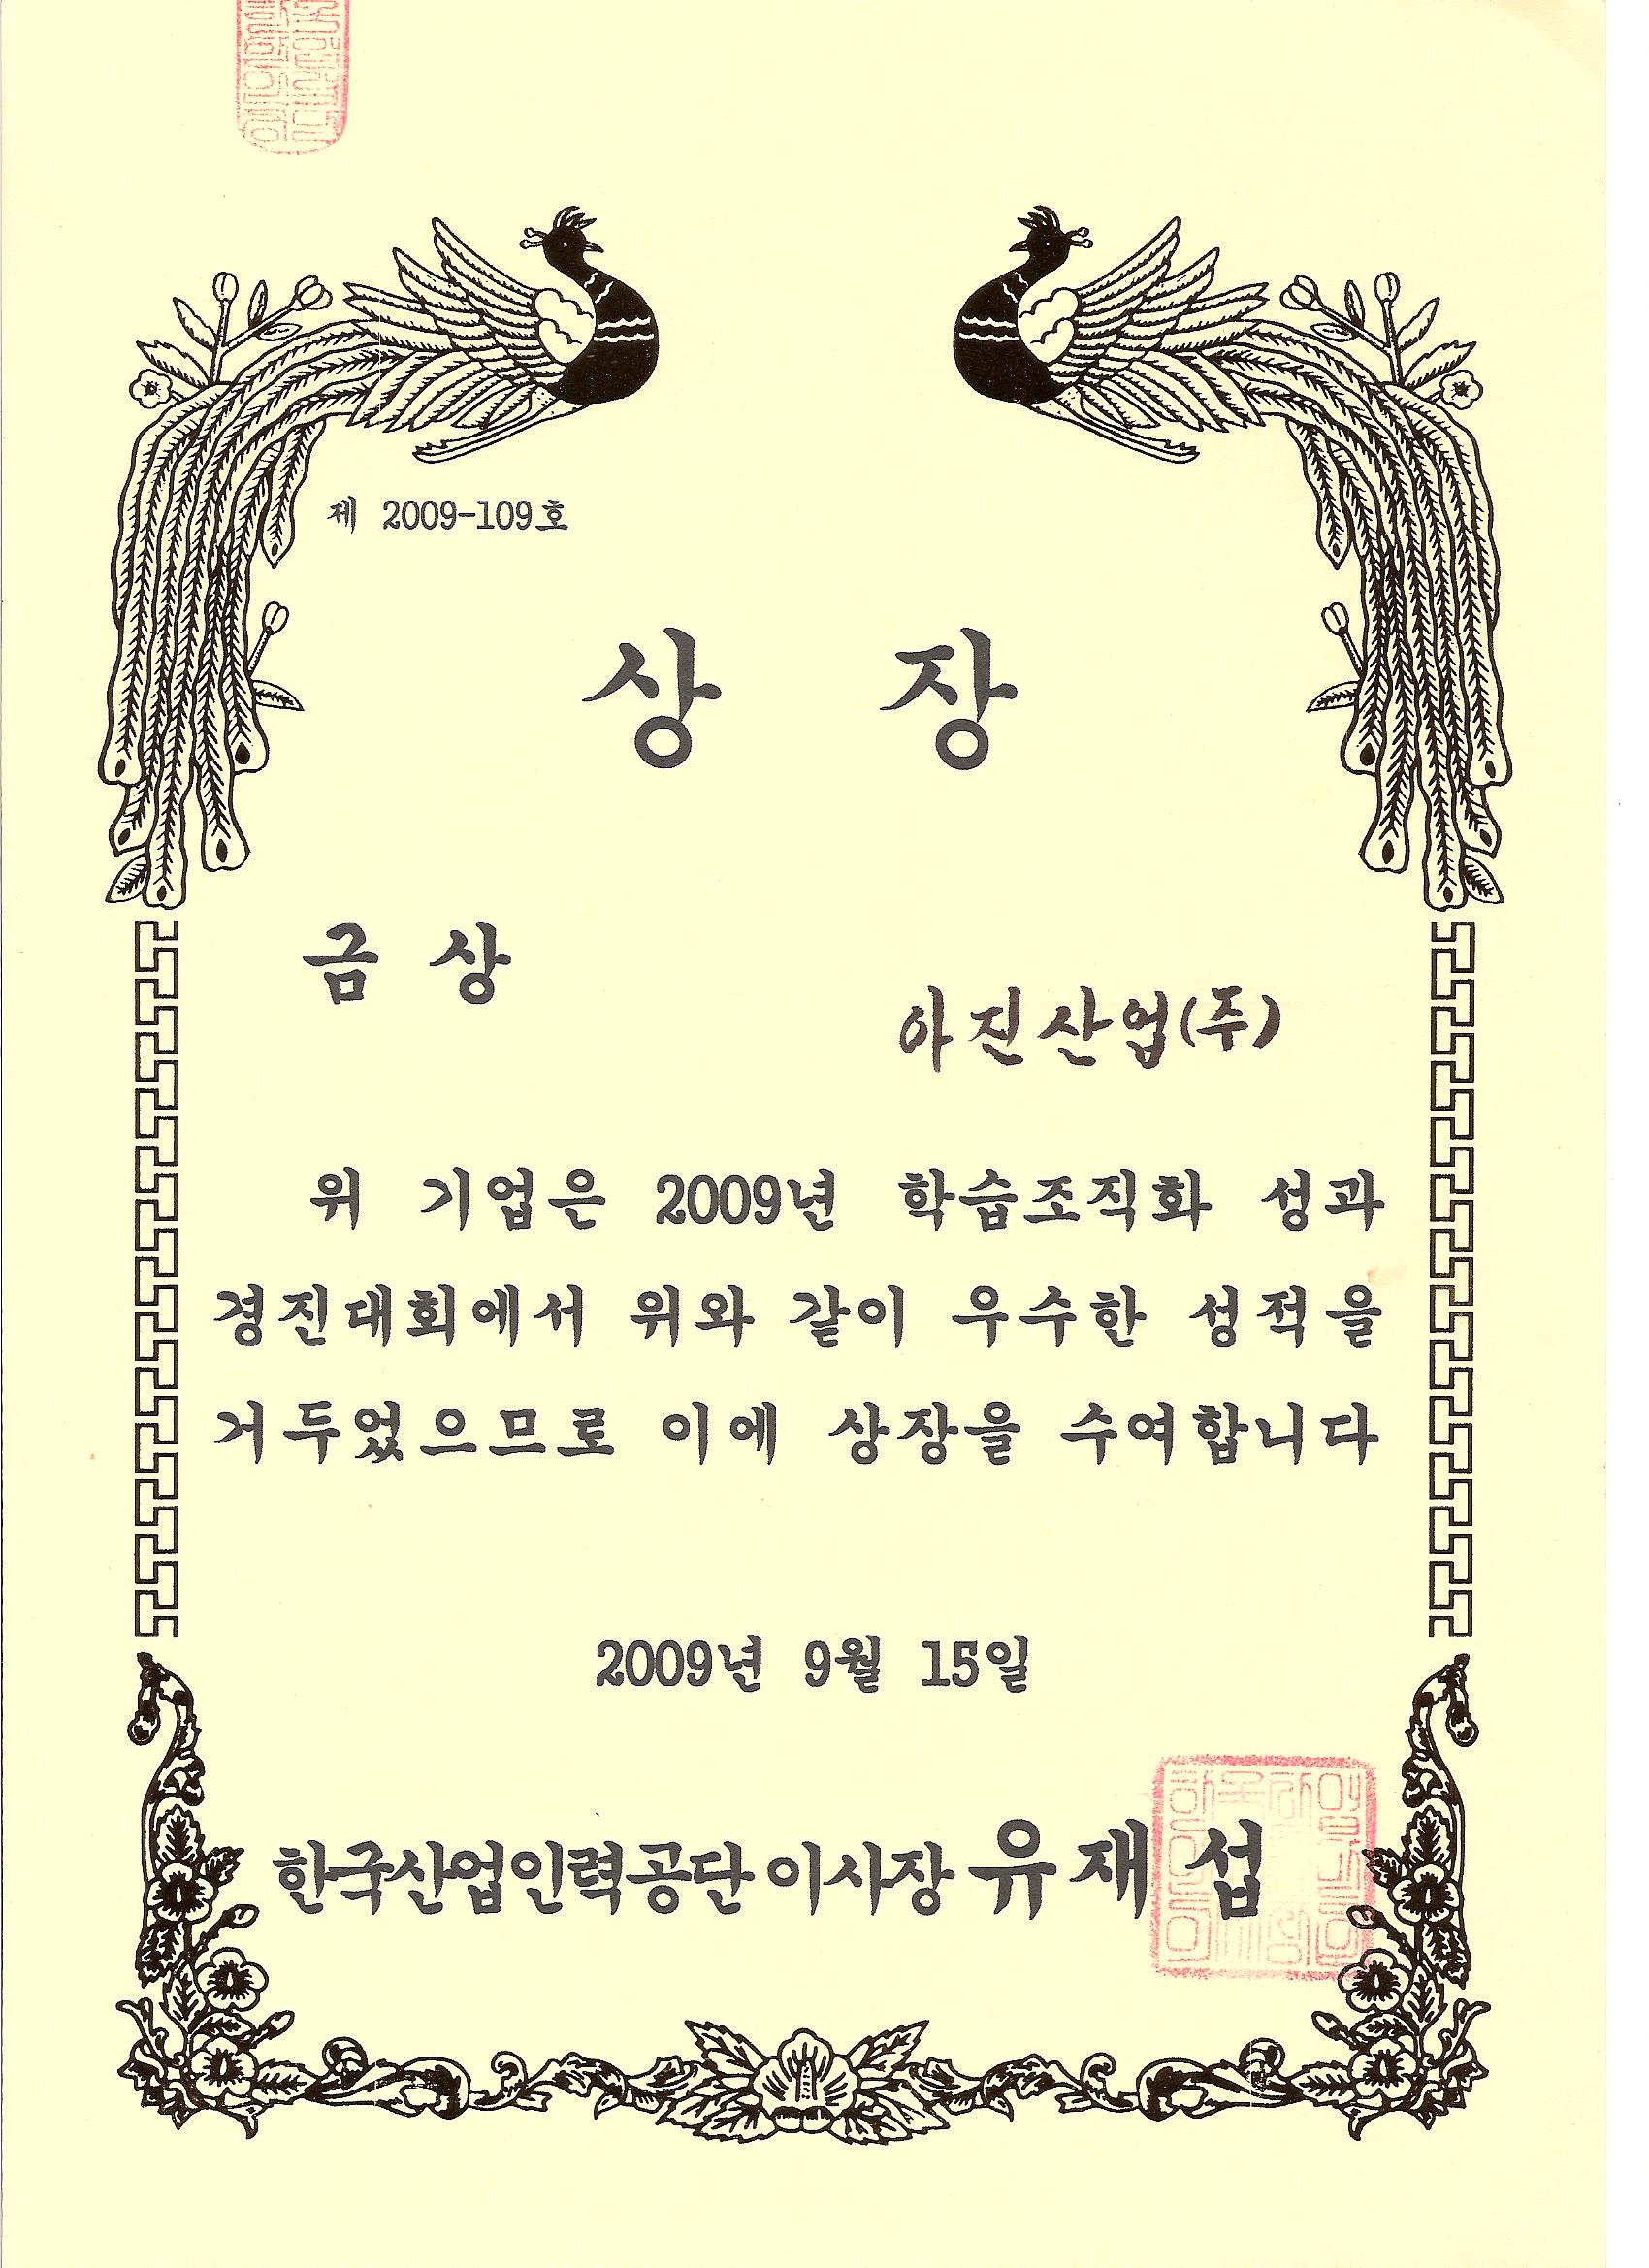 제 2009-109호
상 장
금 상
아진산업(주)
위 기업은 2009년 학습조직화 성과
경진대회에서 위와 같이 우수한 성적을
거두었으므로 이에 상장을 수여합니다
2009년 9월 15일
한국산업인력공단 이사장 유재섭